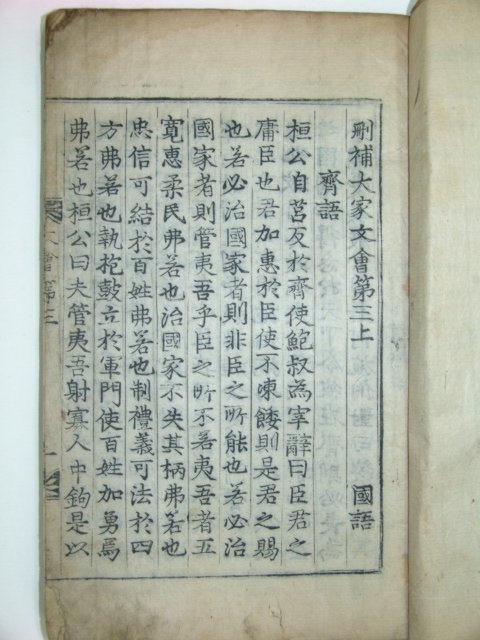 刪補大家文會第三上 國語
齊語
桓公自莒反於齊使鮑叔為宰辭曰臣君之
庸臣也君加惠於臣使不凍餒則是君之賜
也若必治國家者則非臣之所能也若必治
國家者則管夷吾乎臣之所不若夷吾者五
寬惠柔民弗若也治國家不失其柄弗若也
忠信可結於百姓弗若也制禮義可法於四
方弗若也執枹鼓立於軍門使百姓加勇焉
弗若也桓公曰夫管夷吾射寡人中鉤是以
大會第三